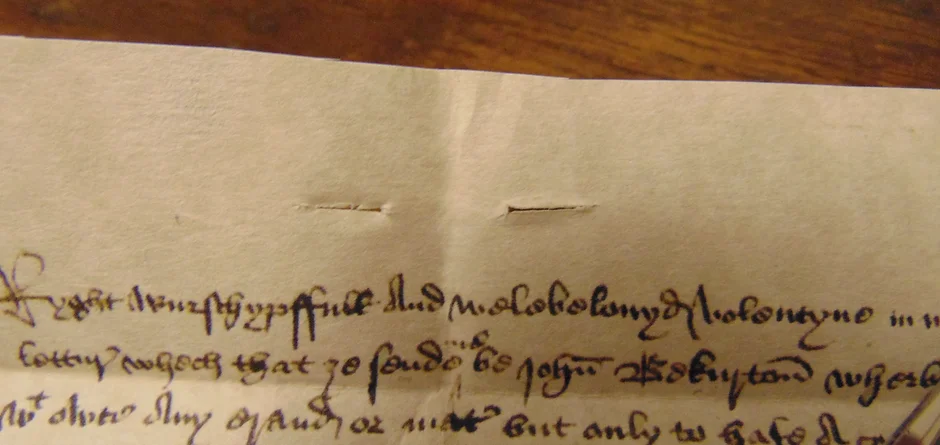 Ryght wurschypffull And welebelouyd Volentyne in m
lettur whech that ye sende me be John Bekurton wherb
wt owte Any or mater but only to hafe A